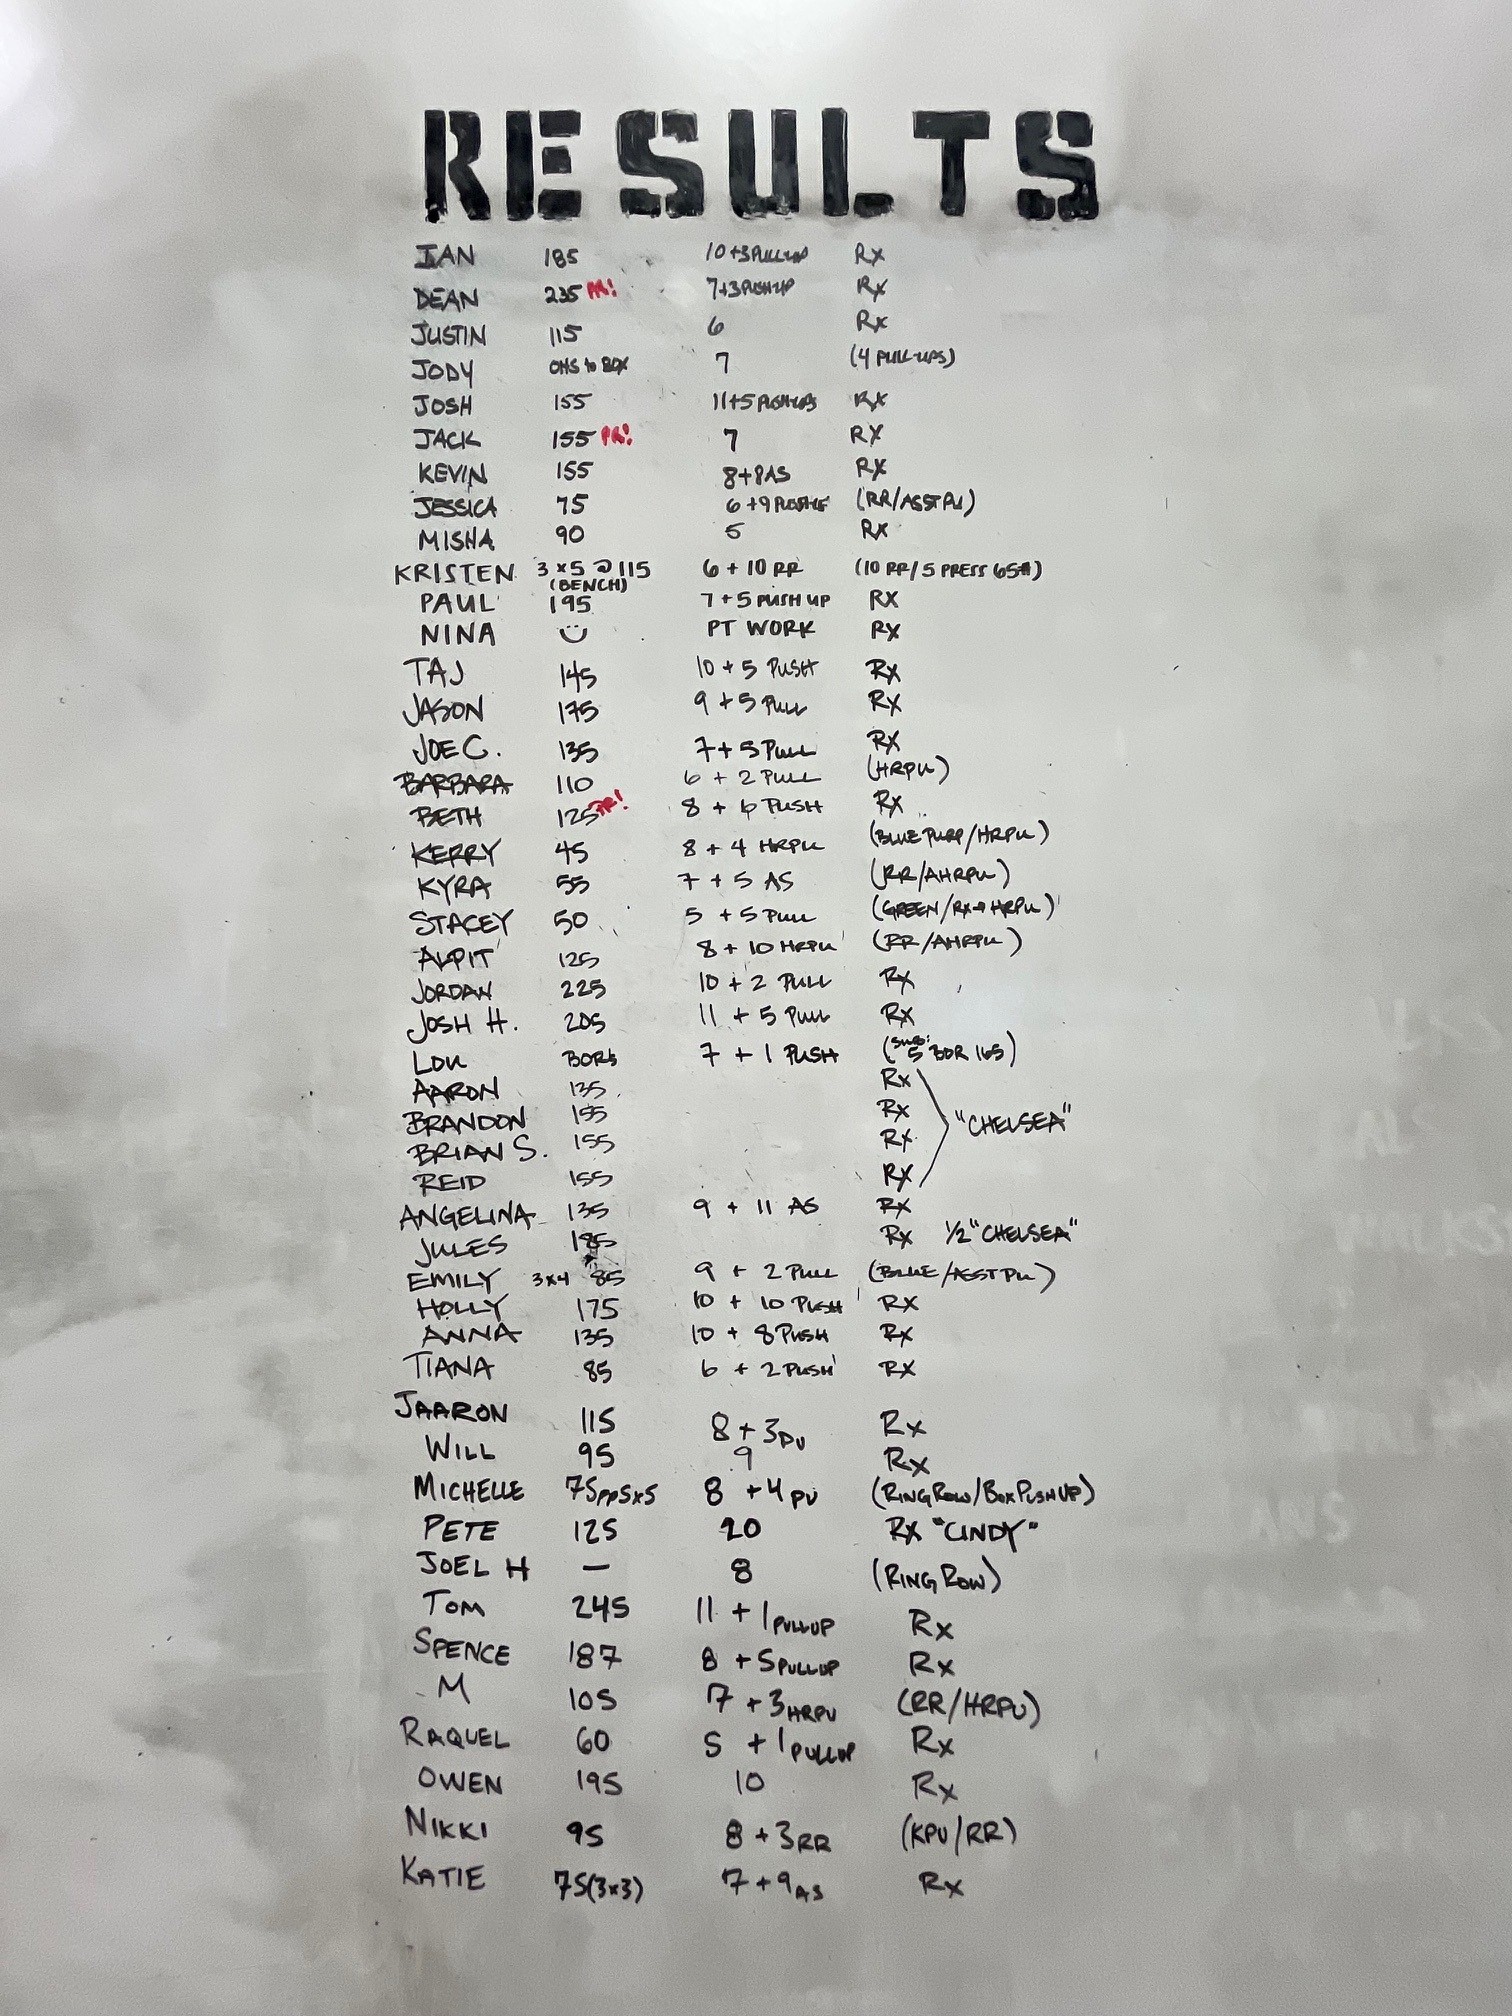 RESULTS
IAN 185 10+3 PULLUP Rx
DEAN 235 PR! 7+3 PUSHUP Rx
JUSTIN 115 6 Rx
JODY OHS to BOX 7 (4 PULL-UPS)
JOSH 155 11+5 PUSHUPS Rx
JACK 155 PR! 7 RX
KEVIN 155 8+8AS Rx
JESSICA 75 6+9 (RR/ASST PU)
MISHA 90 5 Rx
KRISTEN 3x5 @ 115 6 + 10 RR (10 RR/5 PRESS 65#)
(BENCH)
PAUL 195 7 + 5 PUSH UP RX
NINA PT WORK RX
TAJ 145 10 + 5 PUSH Rx
JASON 175 9 + 5 PULL Rx
JOE C. 135 7 + 5 PULL Rx
BARBARA 110 6 + 2 PULL (HRPU)
BETH 125 PR! 8 + 6 PUSH Rx
KERRY 45 8 + 4 HRPU (BLUE PURP/HRPU)
KYRA 55 7 + 5 AS (RR/AHRPU)
STACEY 50 5 + 5 PULL (GREEN/RX→HRPU)
ALPIT 125 8 + 10 HRPU (RR/AHRPU)
JORDAN 225 10 + 2 PULL Rx
JOSH H. 205 11 + 5 PULL Rx
LOU BORS 7 + 1 PUSH (SUB: 5 BOR 165)
AARON 135 Rx
BRANDON 155 Rx "CHELSEA"
BRIAN S. 155 Rx
REID 155 RX
ANGELINA 135 9 + 11 AS Rx
JULES 185 Rx 1/2 "CHELSEA"
EMILY 3x4 85 9 + 2 PULL (BLUE/ASST PU)
HOLLY 175 10 + 10 PUSH RX
ANNA 135 10 + 8 PUSH Rx
TIANA 85 6 + 2 PUSH RX
JAARON 115 8 + 3PU Rx
WILL 95 9 Rx
MICHELLE 75PP5x5 8 + 4 PU (RING ROW/BOX PUSH UP)
PETE 125 20 RX "CINDY"
JOEL H — 8 (RING ROW)
TOM 245 11 + 1 PULLUP Rx
SPENCE 187 8 + 5 PULLUP Rx
M 105 7 + 3 HRPU (RR/HRPU)
RAQUEL 60 5 + 1 PULLUP Rx
OWEN 195 10 Rx
NIKKI 95 8 + 3 RR (KPU/RR)
KATIE 75(3x3) 7 + 9 AS Rx